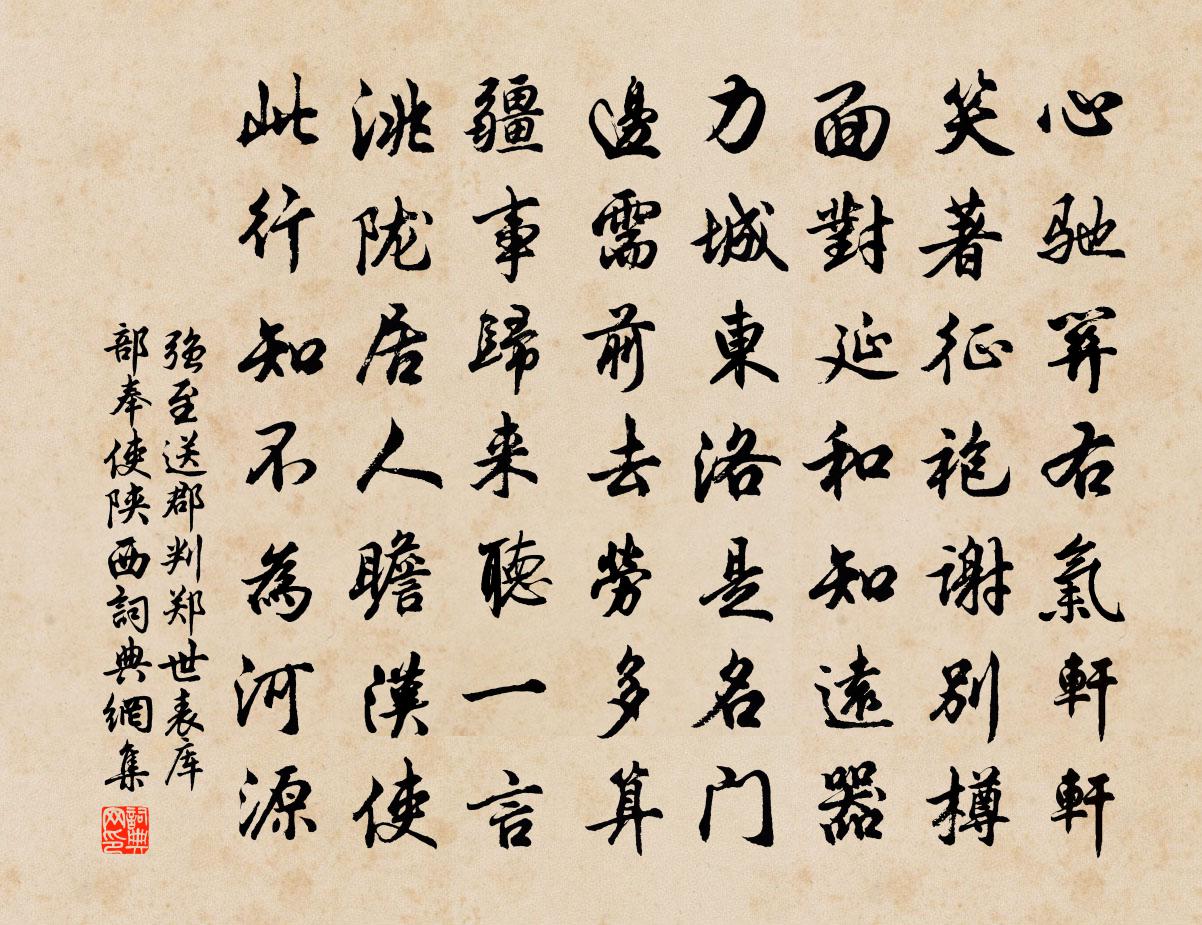 心驰關右氣軒軒
笑著征袍謝别樽
面對延和知遠器
力城東洛是名门
邊需前去勞多算
疆事歸来聽一言
洮陇居人瞻漢使
此行知不為河源
强至送郡判郑世表库
部奉使陕西詞典網集
詞典
网印